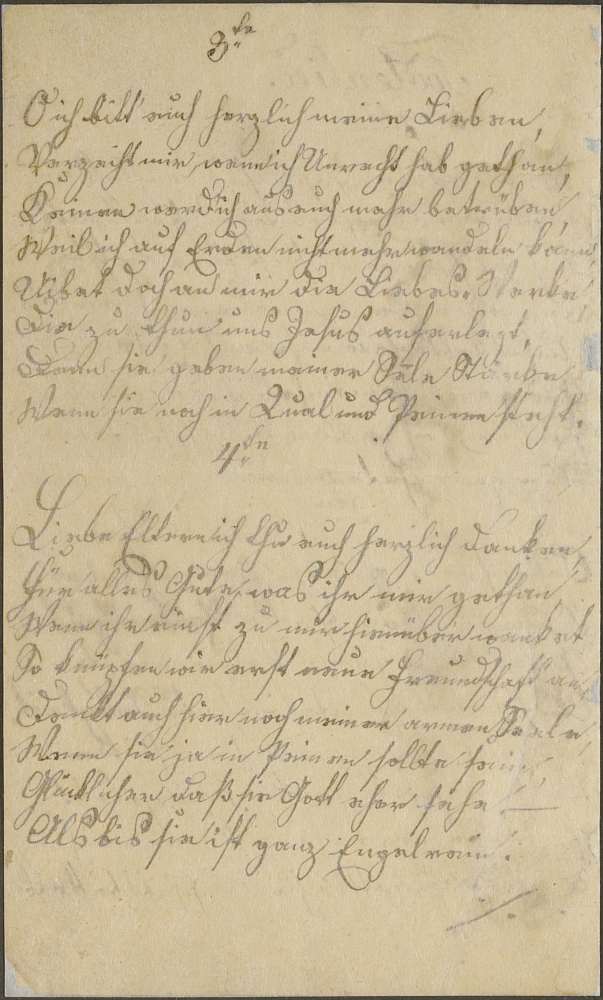 3te
O ich bitt' euch herzlich meine Lieben,
Verzeiht mir, wenn ich Unrecht hab gethan,
Keinen werd' ich aus euch mehr betrüben
Weil ich auf Erden nicht mehr wandeln kann,
Uibet doch an mir die Liebes-Werke,
Die zu thun uns Jesus auferlegt,
Denn sie geben meiner Sele Stärke
Wenn sie noch in Qual und Peinen steht.
4te
Liebe Eltern ich thu euch herzlich danken,
Für alles Gute, was ihr mir gethan
Wenn ihr einst zu mir hinüber wanket
So knüpfen wir erst neue Freundschaft an,
Denkt auch hier noch meiner armen Seele
Wenn sie ja in Peinen sollte sein,
Glücklicher daß sie Gott eher sehe
Als bis sie ist ganz Engelrein.